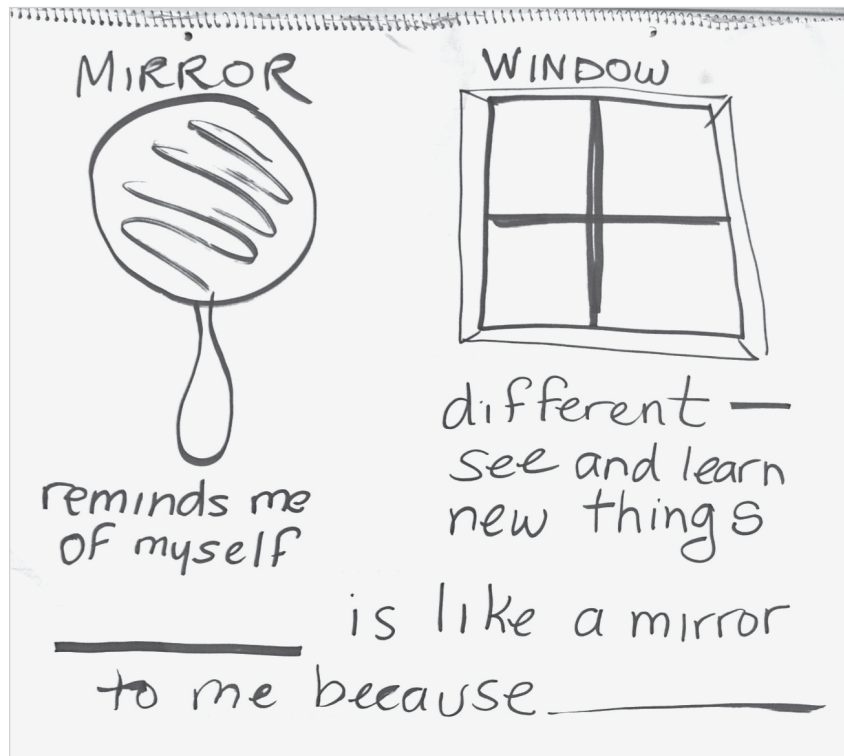 MIRROR
WINDOW
reminds me
of myself
different —
see and learn
new things
_____ is like a mirror
to me because _____